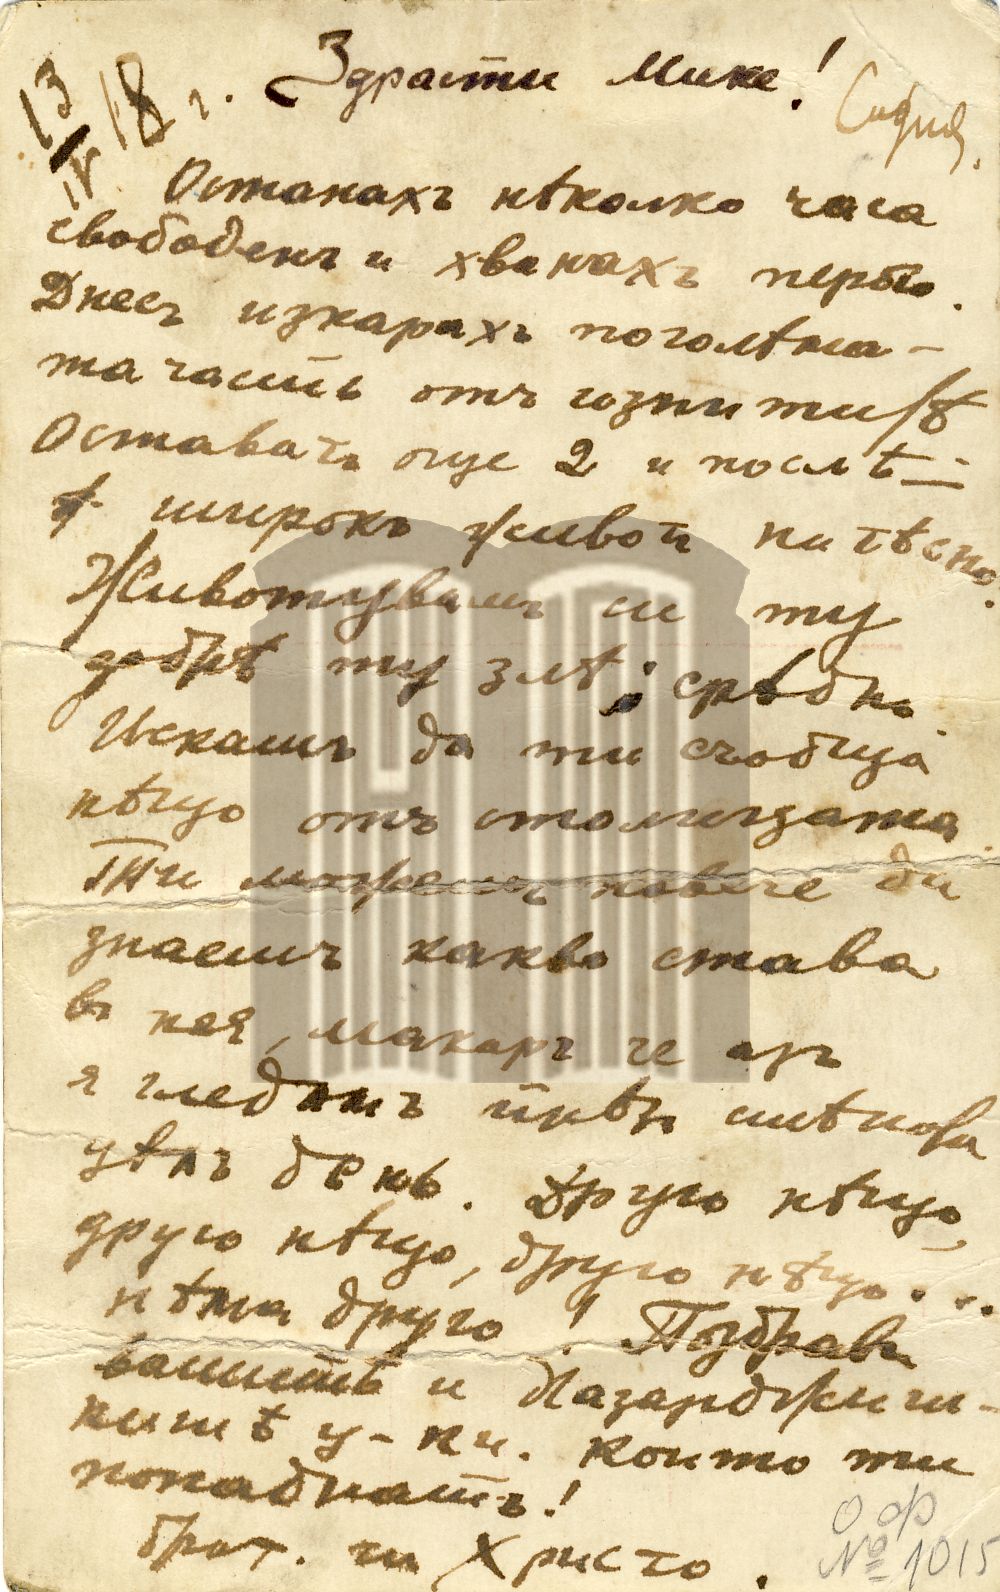 13/IV 18 г. Здрасти Мике!
София.
Останахъ нѣколко часа
свободенъ и хванахъ перото.
Днесъ изкарахъ поголѣма-
та часть отъ изпититѣ
Оставатъ още 2 и послѣ —
широкъ животъ на тѣсно.
Животувамъ си ту
добрѣ ту злѣ; срѣдно
Искашъ да ти съобща
нѣщо отъ столицата
Ти можешъ повече да
знаешъ какво става
въ нея, макаръ че азъ
я гледамъ
цѣлъ день. Друго нѣщо,
друго нѣщо, друго нѣщо...
нѣма друго! Поздрави
вашитѣ и Пазарджич-
китѣ у-ки. които ти
попаднатъ!
брат. ти Христо.
О ф
№ 1015